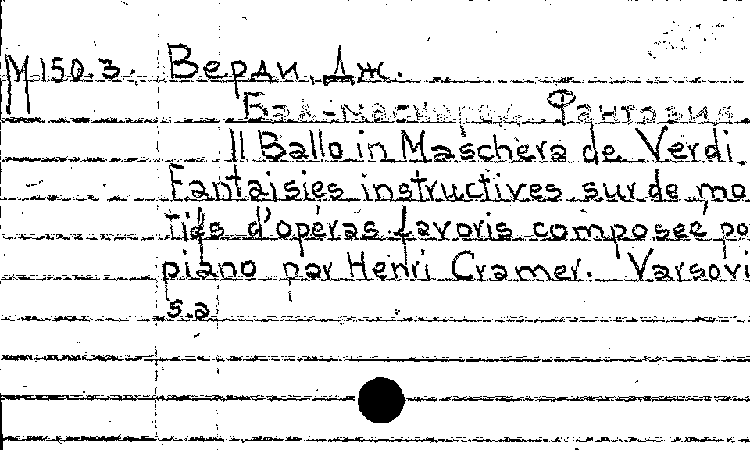 М150.3. Верди, Дж.
Бал-маскарад. Фантазия
Il Ballo in Maschera de Verdi.
Fantaisies instructives sur de mo
tifs d'opéras favoris composée po
piano par Henri Cramer. Varsovi
s.a